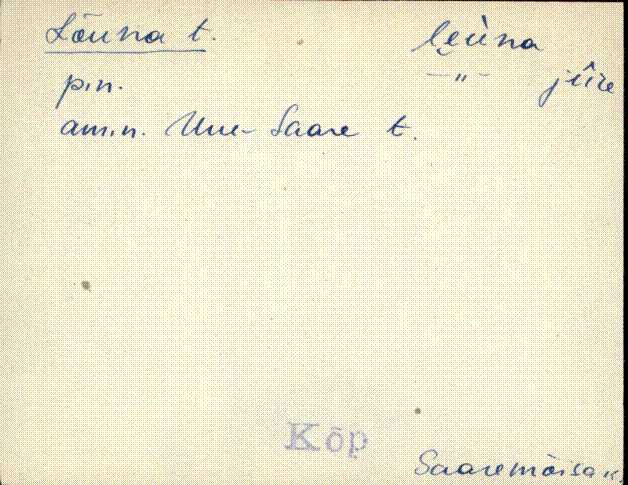 Lõuna t. le̮ùna
p.n. — " — jûre
am.n. Uue-Saare t.
Kõp
Saaremõisa k.